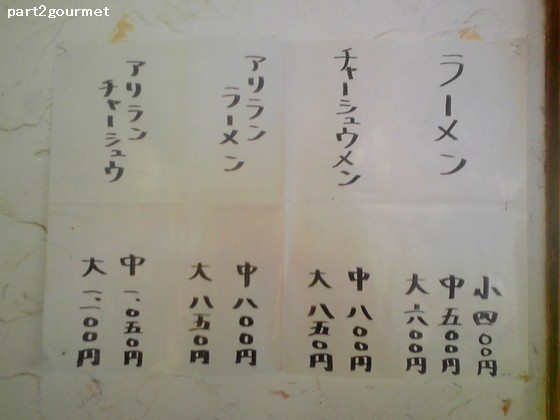 part2gourmet
ラーメン
小 四〇〇円
中 五〇〇円
大 六〇〇円
チャーシュウメン
中 八〇〇円
大 八五〇円
アリラン
ラーメン
中 八〇〇円
大 八五〇円
アリラン
チャーシュウ
中 一、〇五〇円
大 一、一〇〇円